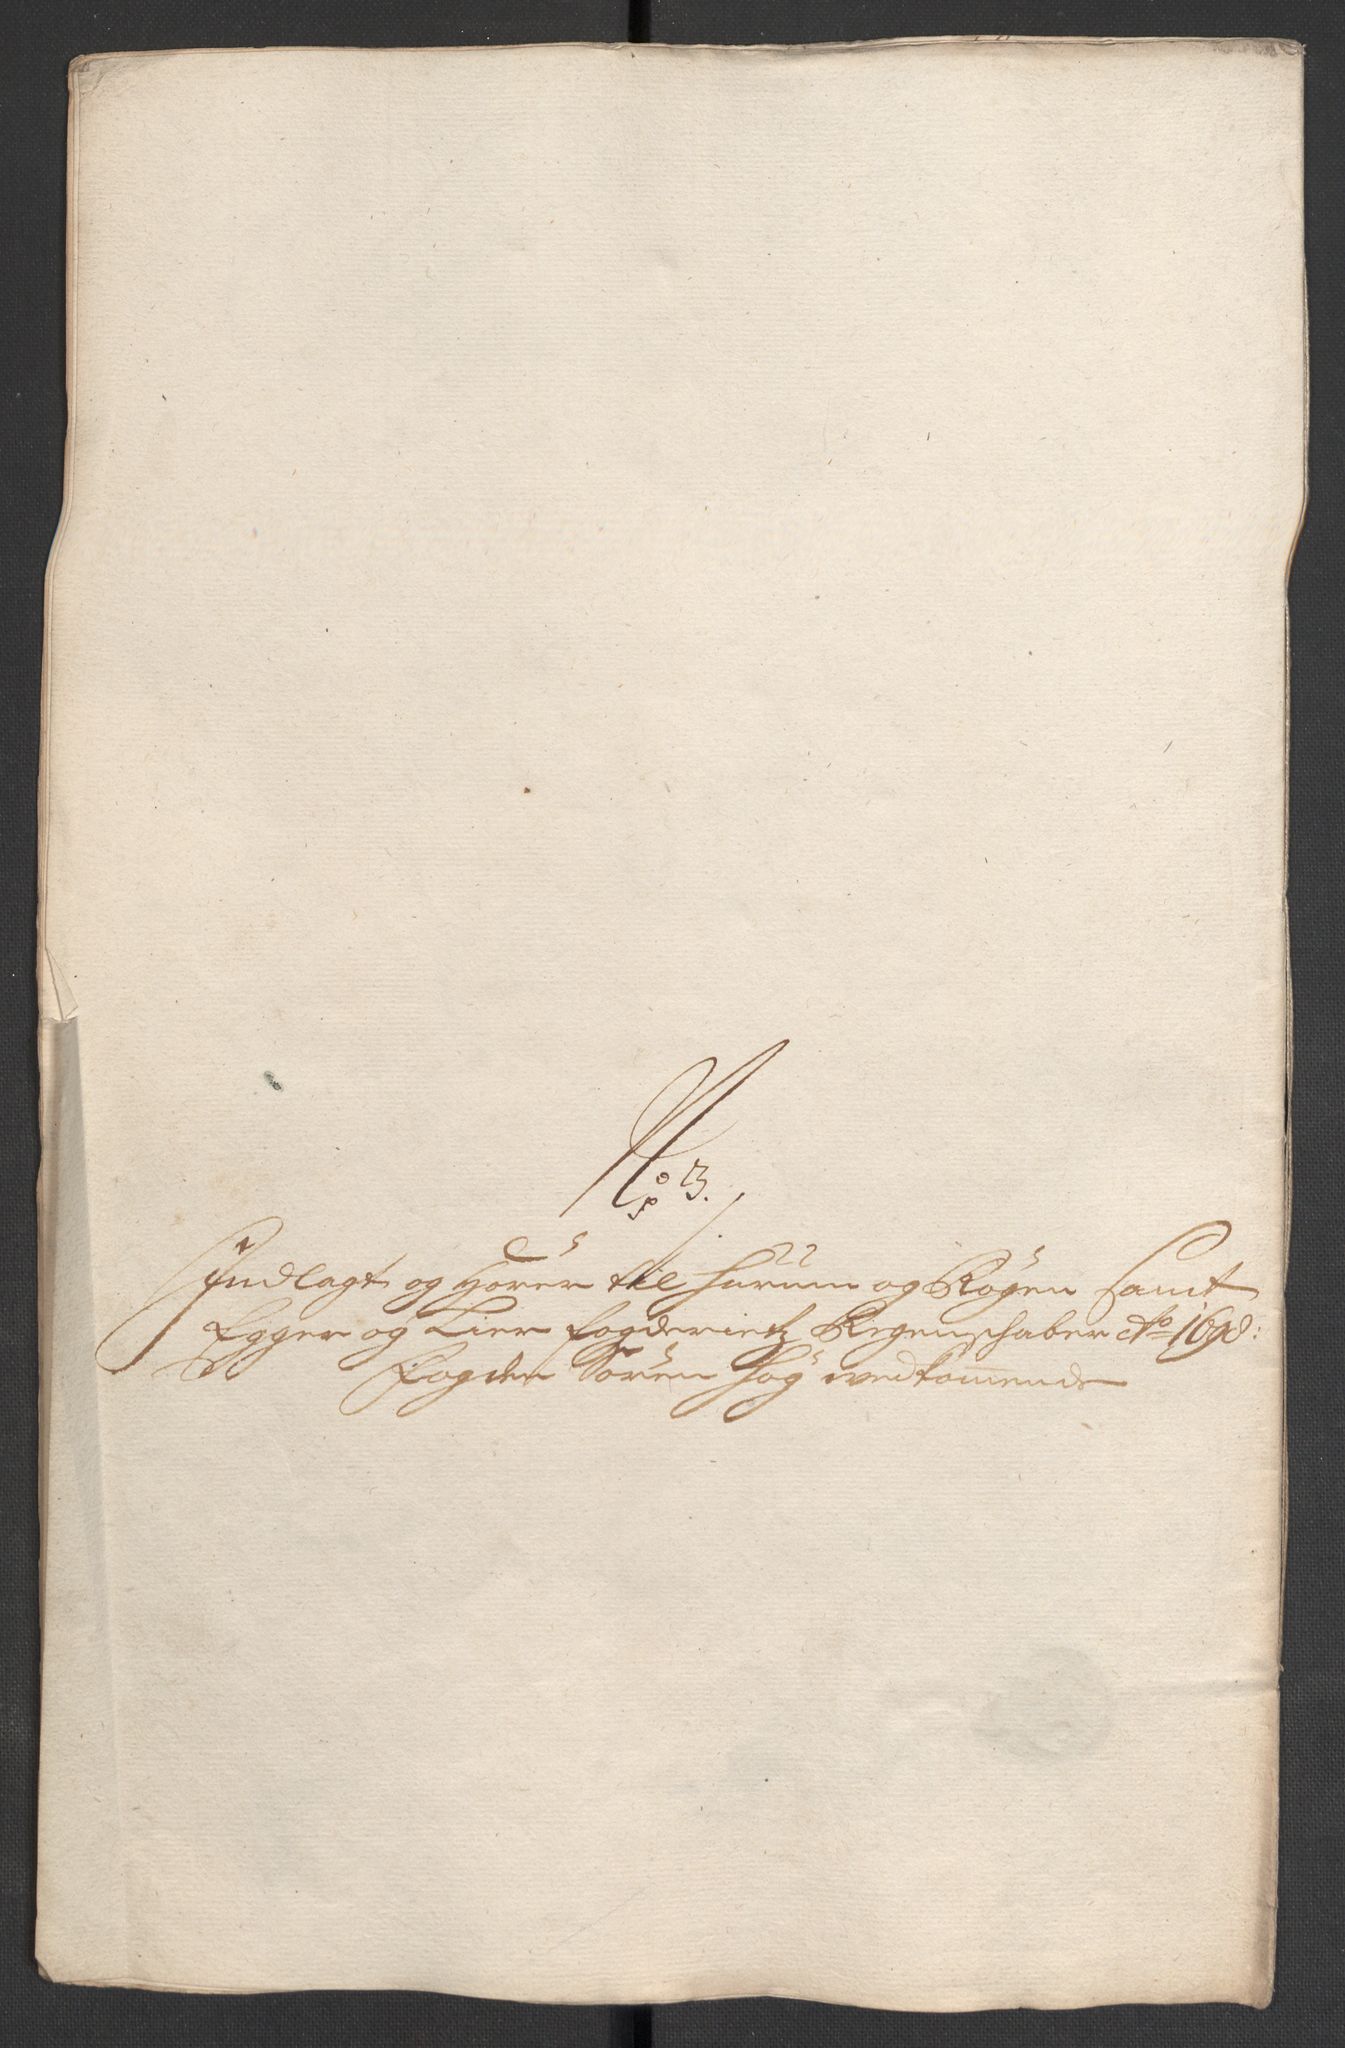 No 3.
Indlagt og Hører til Hurum og Røgen Samt
Egger og Lier fogderietz Regenschaber Ao 1698:
Fogden Søren Høg vedkommende